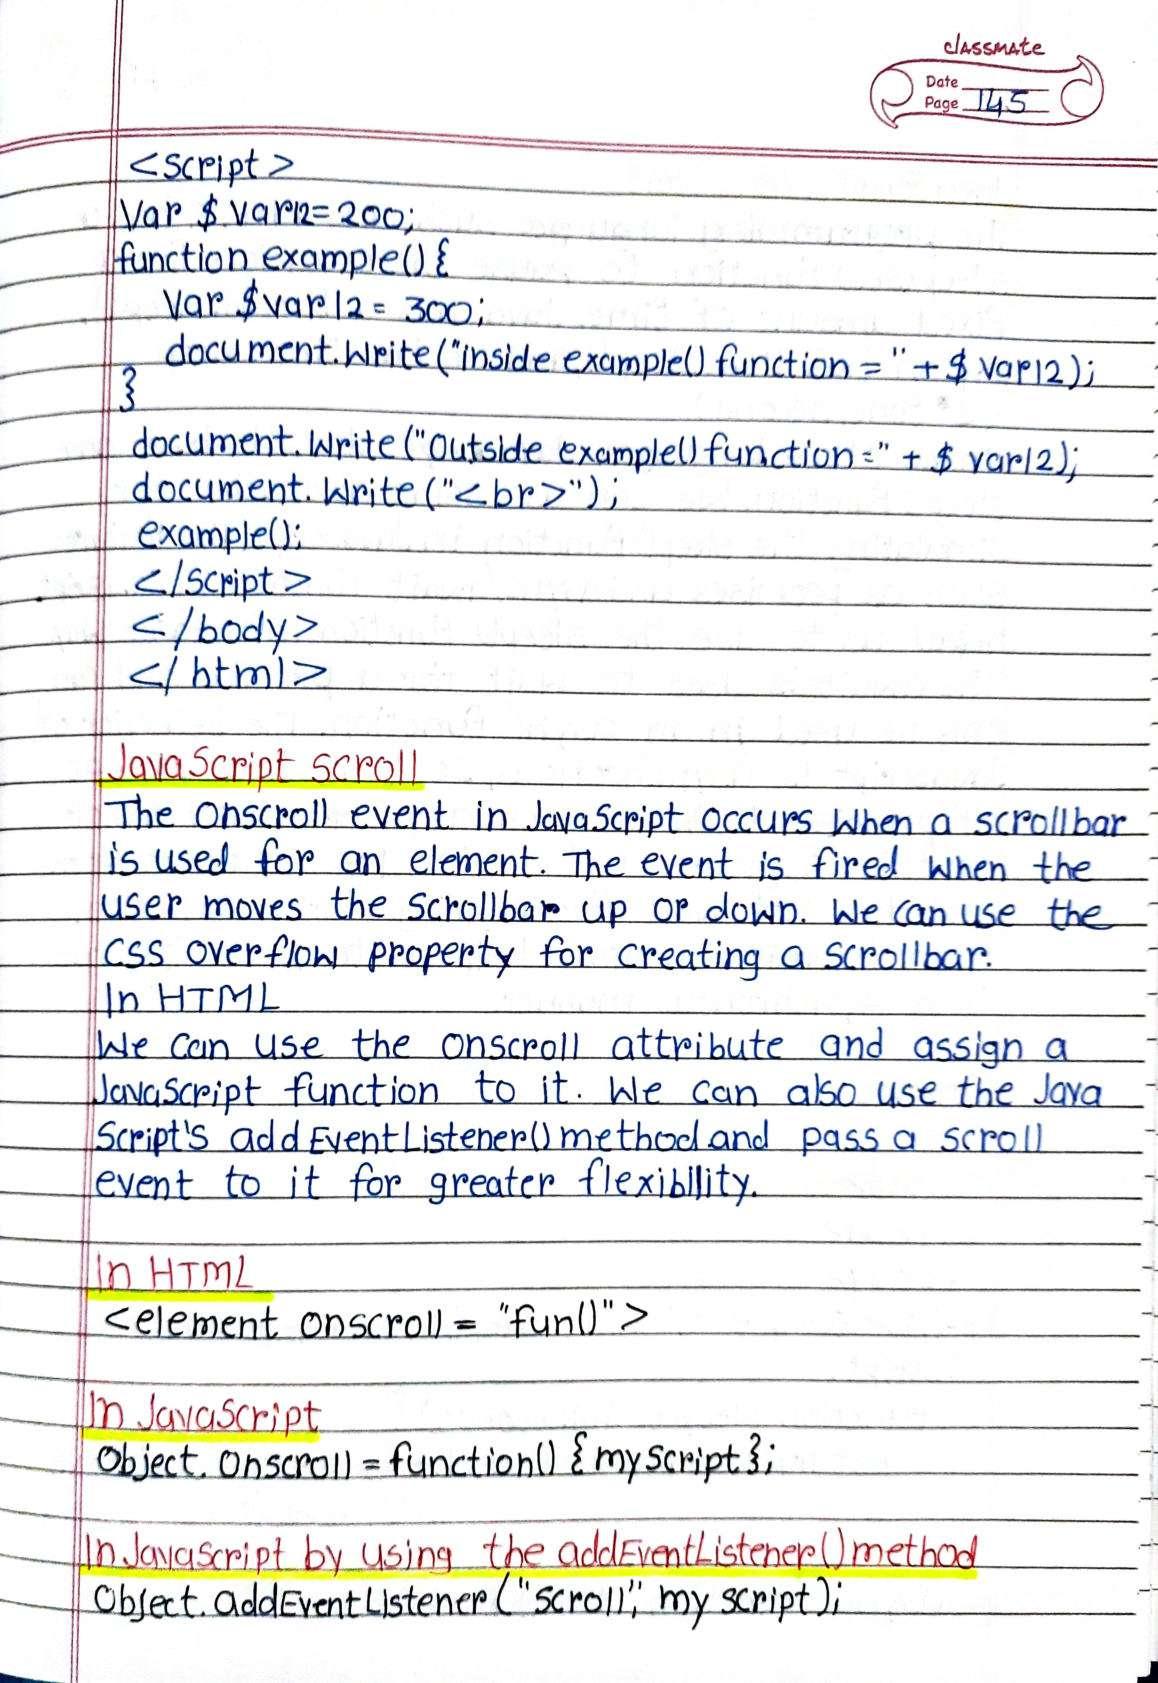 classmate
Date
Page 145
<script>
Var $ var12=200;
function example() {
Var $var12 = 300;
document.Write("inside example() function =" + $ var12);
}
document.Write("Outside example() function=" + $ var12);
document.Write("<br>");
example();
</script>
</body>
</html>
JavaScript scroll
The onscroll event in JavaScript occurs when a scrollbar
is used for an element. The event is fired when the
user moves the scrollbar up or down. We can use the
CSS overflow property for creating a scrollbar.
In HTML
We can use the onscroll attribute and assign a
JavaScript function to it. We can also use the Java
Script's addEventListener() method and pass a scroll
event to it for greater flexibility.
In HTML
<element onscroll = "fun()">
In JavaScript
Object.onscroll = function() {my script};
In Javascript by using the addEventListener() method
Object.addEventListener("scroll", my script);